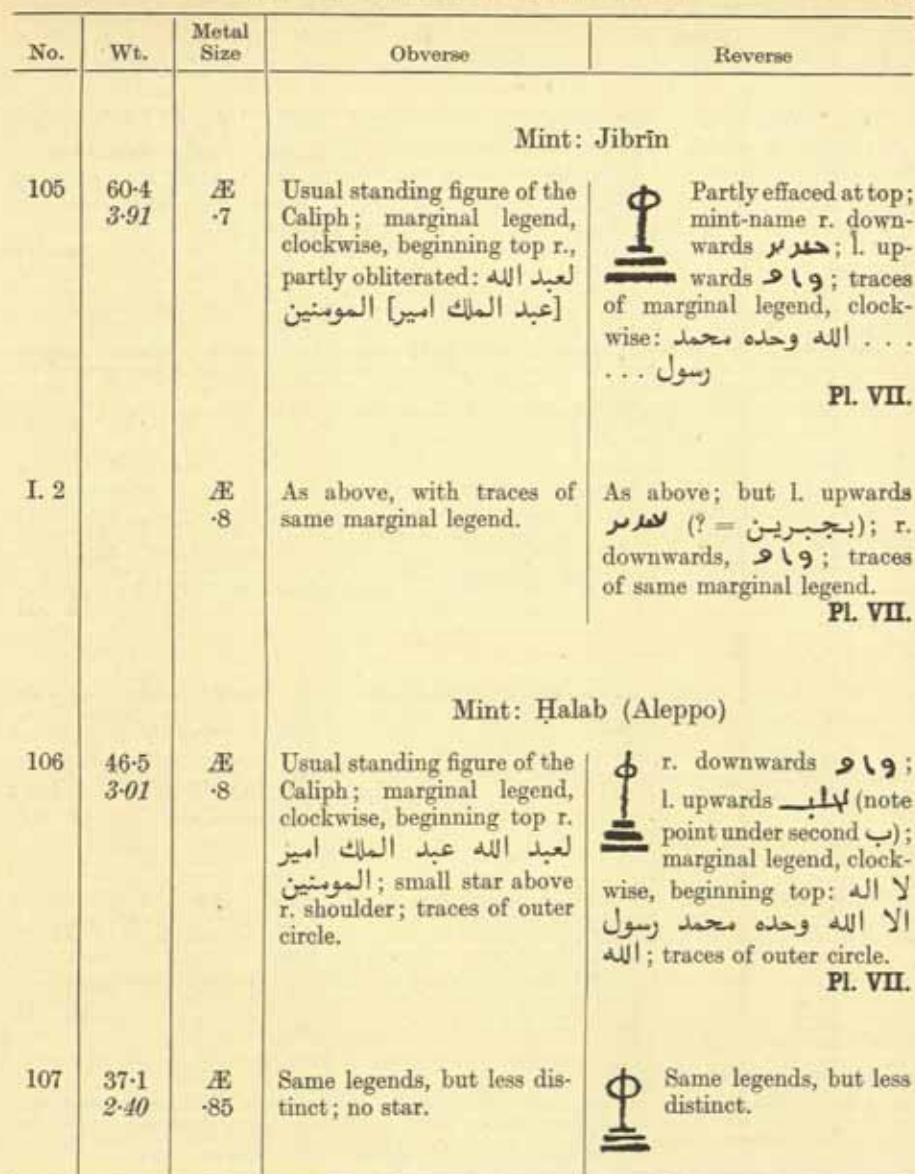 No. Wt. Metal Size Obverse Reverse
Mint: Jibrīn
105 60·4 3·91 Æ ·7
Usual standing figure of the
Caliph; marginal legend,
clockwise, beginning top r.,
partly obliterated: لعبد الله
[عبد الملك امير] المومنين
Partly effaced at top;
mint-name r. down-
wards ; l. up-
wards واو ; traces
of marginal legend, clock-
wise: . . . الله وحده محمد
رسول . . .
Pl. VII.
I. 2 Æ ·8
As above, with traces of
same marginal legend.
As above; but l. upwards
(? = بجبرين); r.
downwards, واو ; traces
of same marginal legend.
Pl. VII.
Mint: Ḥalab (Aleppo)
106 46·5 3·01 Æ ·8
Usual standing figure of the
Caliph; marginal legend,
clockwise, beginning top r.
لعبد الله عبد الملك امير
المومنين; small star above
r. shoulder; traces of outer
circle.
r. downwards واو ;
l. upwards (note
point under second ب);
marginal legend, clock-
wise, beginning top: لا اله
الا الله وحده محمد رسول
الله; traces of outer circle.
Pl. VII.
107 37·1 2·40 Æ ·85
Same legends, but less dis-
tinct; no star.
Same legends, but less
distinct.